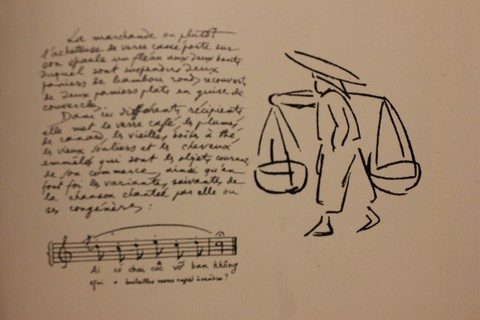 La marchande ou plutôt
l'acheteuse de verre cassé porte sur
son épaule un fléau aux deux bouts
duquel sont suspendus deux
paniers de bambou ronds recouverts
de deux paniers plats en guise de
couvercles.
Dans ces différents récipients
elle met le verre cassé, les plumes
de canard, les vieilles boîtes à thé,
les vieux souliers et les cheveux
emmêlés qui sont les objets courants
de son commerce, ainsi qu'en
font foi les variantes suivantes de
la chanson chantée par elle ou
ses congénères :
Ai có chai cốc vỡ bán không
qui a bouteilles verres cassés à vendre ?